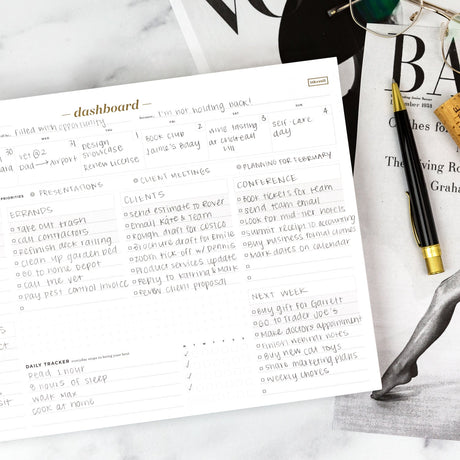 — dashboard —
filled with opportunity
I'm not holding back!
30
31
1
2
3
4
vet @ 2
dad → airport
design
showcase
review license
BOOK CLUB
Jamie's Bday
wine tasting
at Chateau
Hill
self-care
day
PRIORITIES
PRESENTATIONS
CLIENT MEETINGS
PLANNING FOR FEBRUARY
ERRANDS
Take out trash
call contractors
Refinish deck railing
clean up garden bed
Go to Home Depot
call the vet
pay pest control invoice
CLIENTS
send estimate to Rover
Email Kate & Team
Rough draft for Costco
Brochure draft for Emile
zoom kick off w/ Dennis
Product services update
Reply to Katrina & Mark
Review client proposal
CONFERENCE
Book tickets for team
send team email
Look for mid-tier hotels
Submit receipt to accounting
Buy business formal clothes
Mark dates on calendar
NEXT WEEK
Buy gift for Garrett
Go to Trader Joe's
Make doctors appointment
finish webinar notes
Buy new cat toys
share marketing plans
weekly chores
DAILY TRACKER
Read 1 hour
8 hours of sleep
walk Max
cook at home
M T W T F S S
BA
November 1958
The
iving Roo
Graha